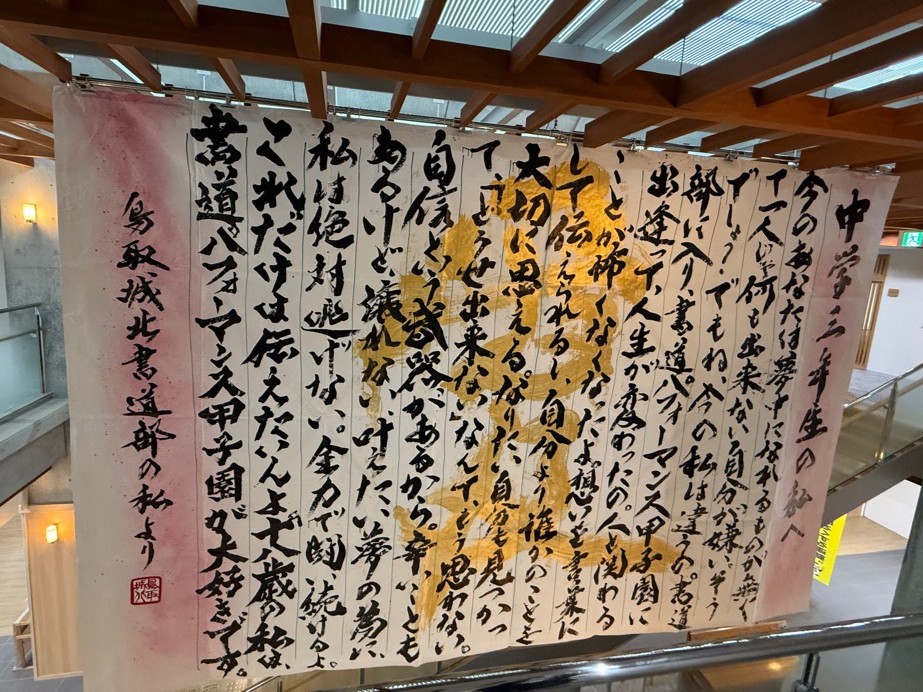 中学三年生の私へ
今のあなたは夢中になれるものが無く
て一人じゃ何も出来ない自分が嫌いそう
でしょう。でもね、今の私は違うの。書道
部に入り、書道パフォーマンス甲子園に
出逢って、人生が変わったの。人と関わる
ことが怖くなくなったよ。想いを言葉に
して伝えられるし、自分より誰かのことを
大切に思える。なりたい自分も見つかっ
て「どうせ出来ない」なんてもう思わない。
自信という武器があるから。辛いことも
あるけど、譲れない、叶えたい夢の為に、
私は絶対逃げない。全力で闘い続けるよ。
これだけは伝えたいんよ。十八歳の私は、
書道パフォーマンス甲子園が大好きです。
鳥取城北書道部の私より
鳥取城北